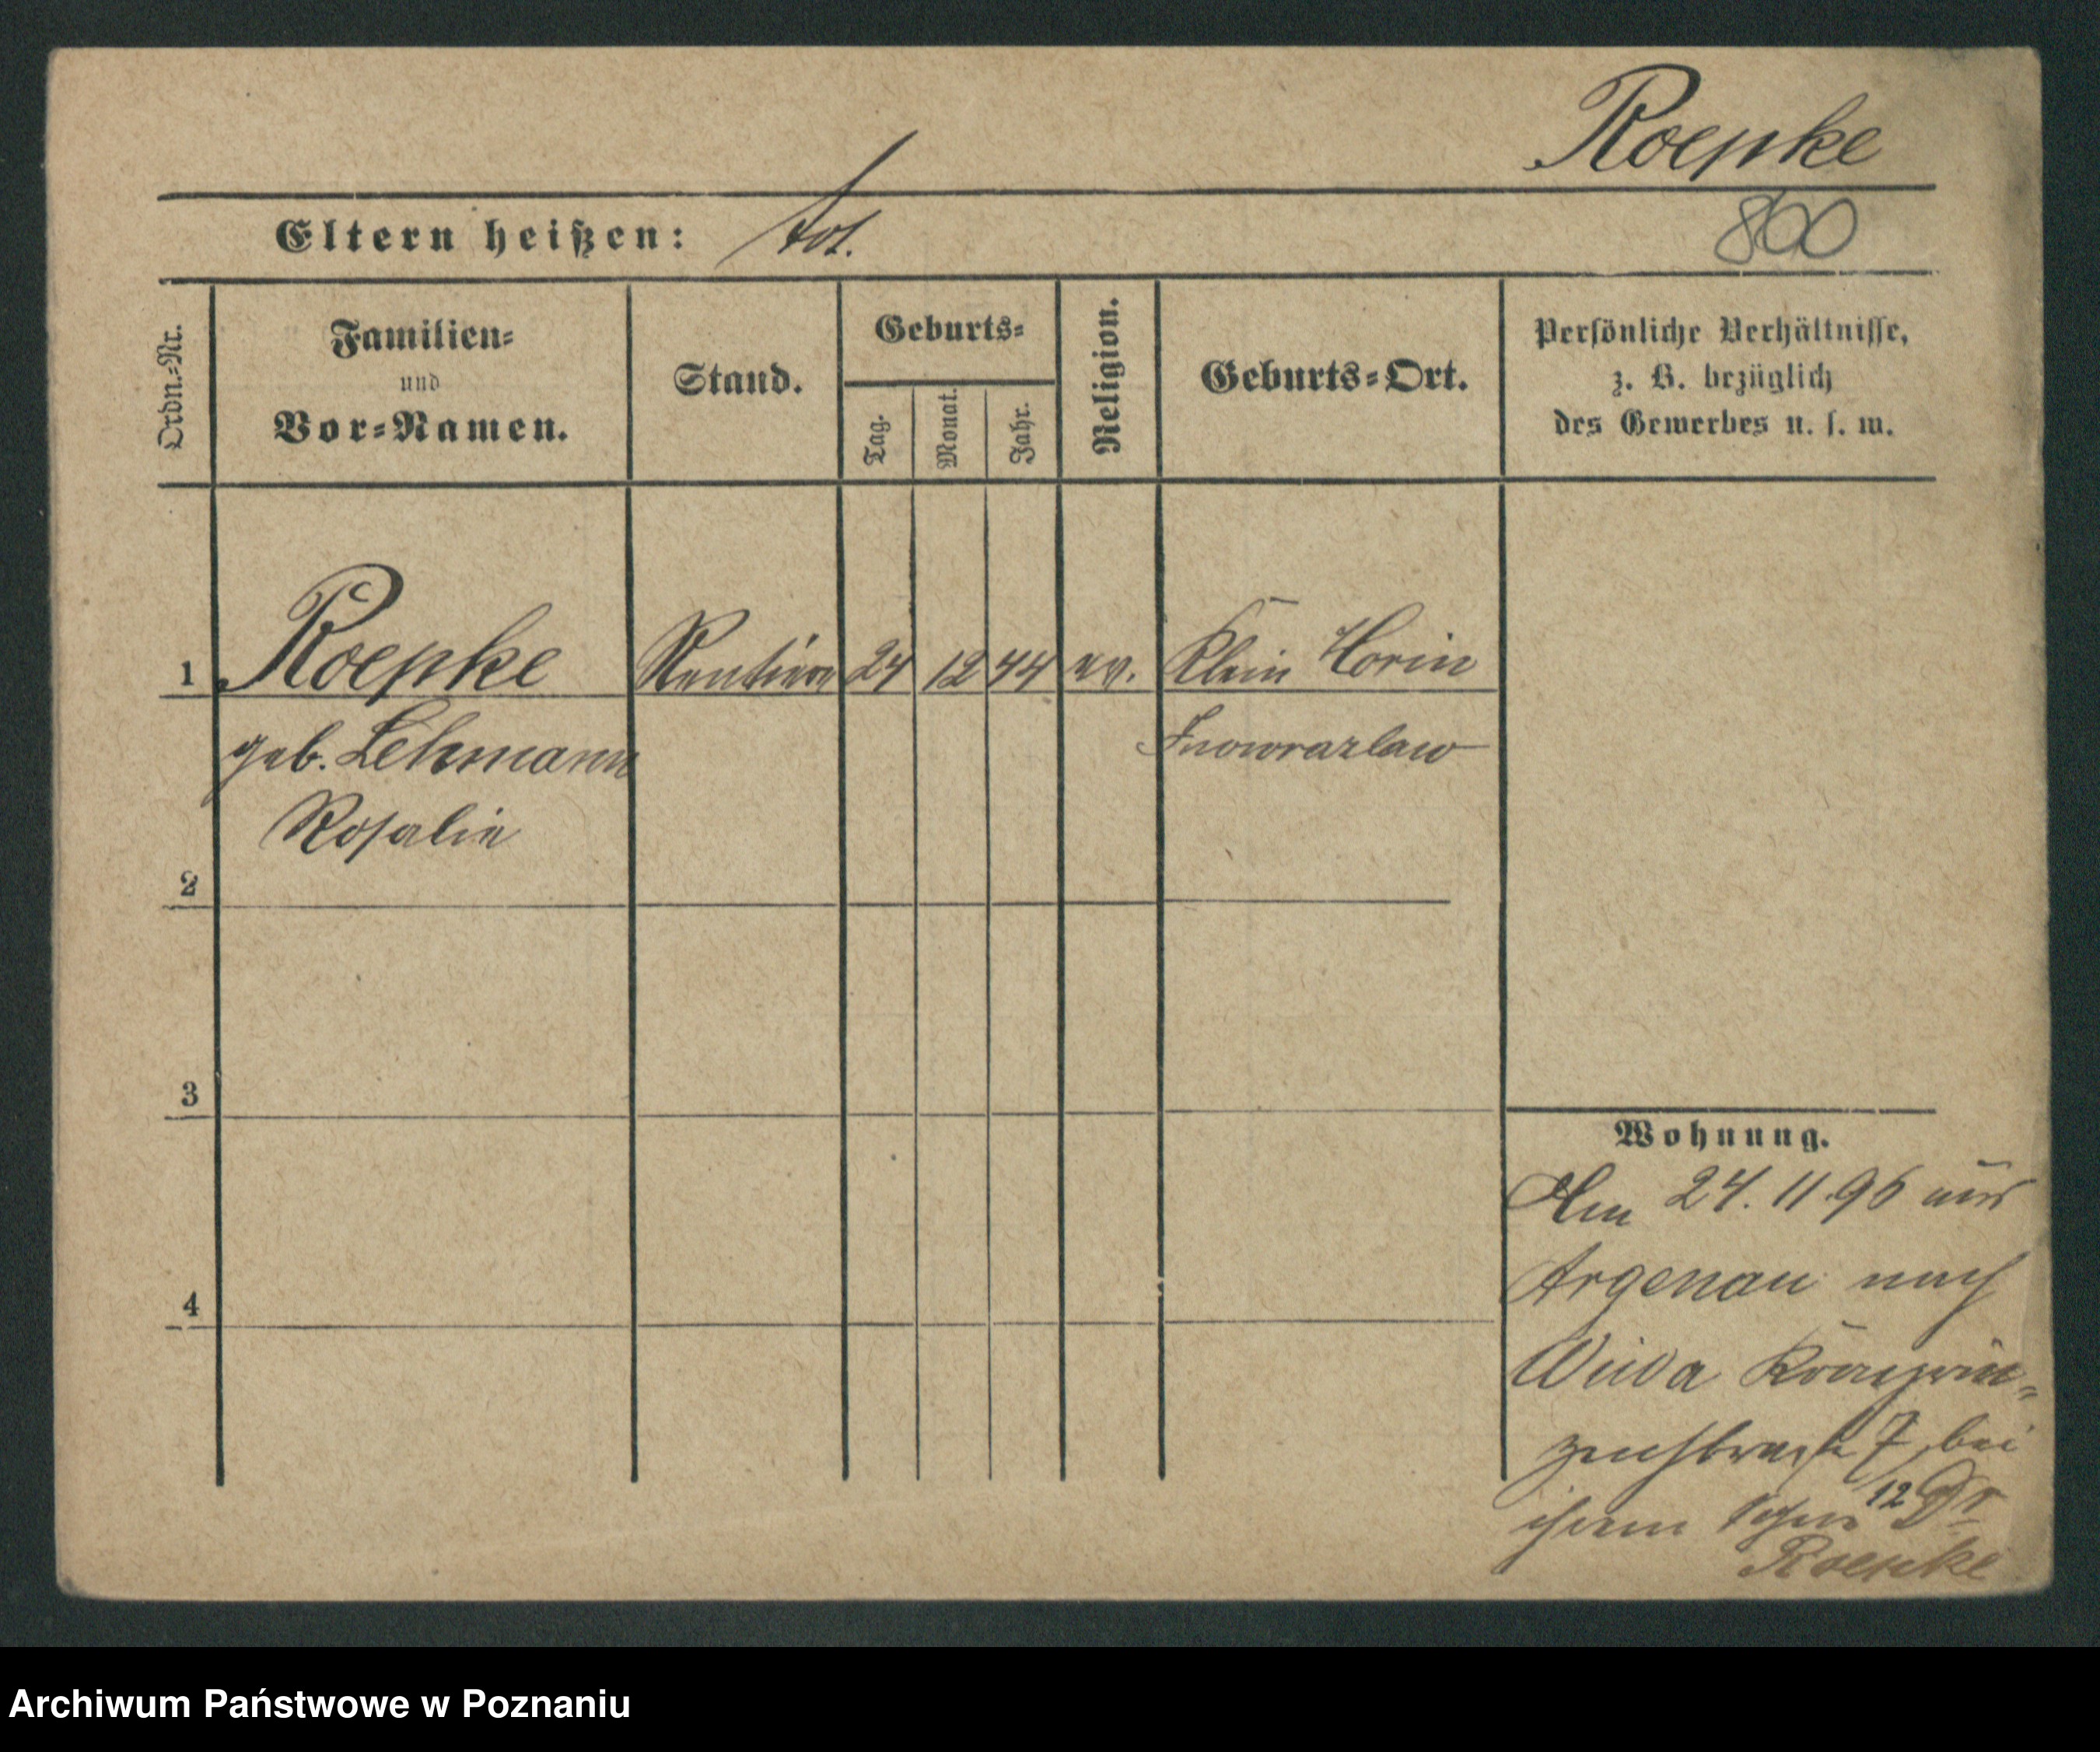 Roepke
800
Eltern heißen: tot.
Ordn.-Nr.
Familien-
und
Vor-Namen.
Stand.
Geburts-
Tag.
Monat.
Jahr.
Religion.
Geburts-Ort.
Persönliche Verhältnisse,
z. B. bezüglich
des Gewerbes u. s. w.
1 Roepke Rentiere 24 12 44 ev. Klein Morin
geb. Lehmann Inowrazlaw
Rosalie
2
3
4
Wohnung.
Am 24. 11. 96 aus
Argenau nach
Wilda Kronprin-
zenstraße 7, bei
ihrem Sohn 12 Dr
Roepke
Archiwum Państwowe w Poznaniu